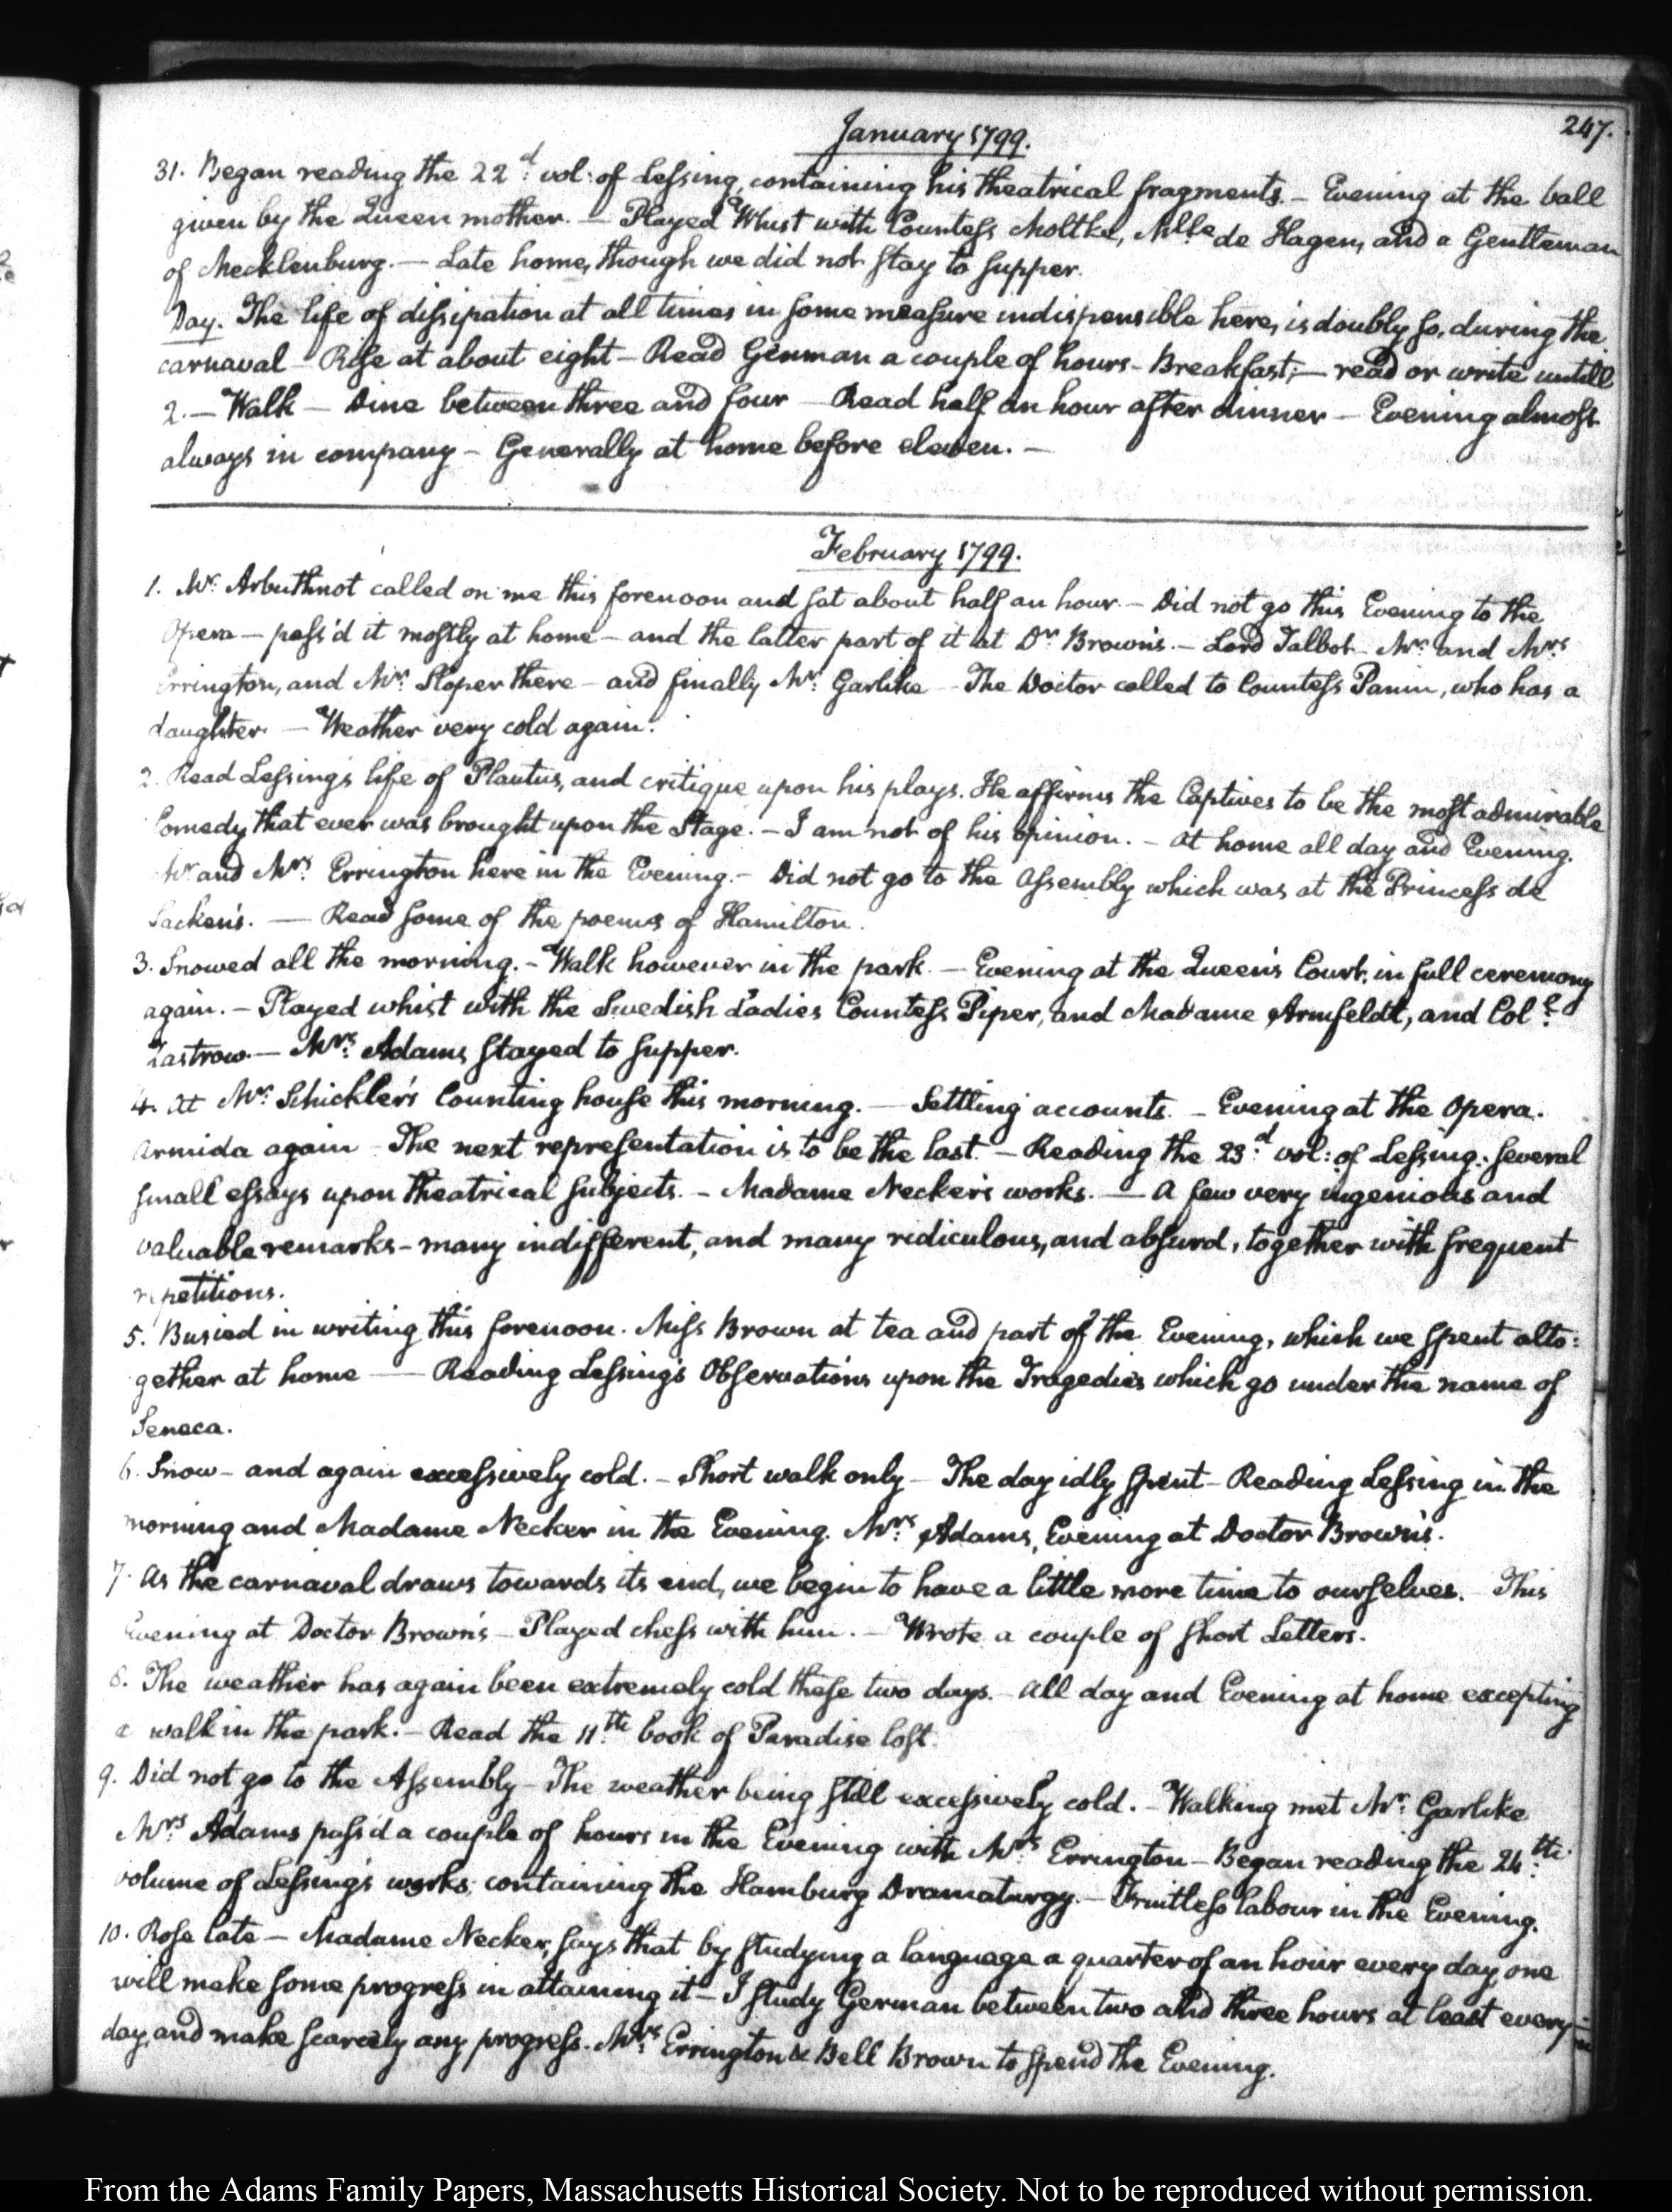 247.
January 1799.
31. Began reading the 22d. vol: of Lessing, containing his theatrical fragments. – Evening at the ball
given by the Queen mother. – Played Whist with Countess Moltke, Mlle de Hagen, and a Gentleman
of Mecklenburg. – Late home, though we did not stay to supper.
Day. The life of dissipation at all times in some measure indispensible here, is doubly so, during the
carnaval – Rise at about eight – Read German a couple of hours – Breakfast; – read or write untill
2. – Walk – Dine between three and four – Read half an hour after dinner – Evening almost
always in company – Generally at home before eleven. –
February 1799.
1. Mr. Arbuthnot called on me this forenoon and sat about half an hour. – Did not go this Evening to the
Opera – pass'd it mostly at home – and the latter part of it at Dr. Brown's. – Lord Talbot – Mr. and Mrs.
Errington, and Mr. Sloper there – and finally Mr. Garlike – The Doctor called to Countess Panin, who has a
daughter – Weather very cold again.
2. Read Lessing's life of Plautus, and critique upon his plays. He affirms the Captives to be the most admirable
Comedy that ever was brought upon the Stage. – I am not of his opinion. – At home all day and Evening.
Mr. and Mrs. Errington here in the Evening. – Did not go to the Assembly which was at the Princess de
Sacken's. – Read some of the poems of Hamilton.
3. Snowed all the morning. – Walk however in the park. – Evening at the Queen's Court, in full ceremony
again. – Played whist with the Swedish Ladies Countess Piper, and Madame Armfeldt, and Coll.
Zastrow. – Mrs. Adams stayed to supper.
4. At Mr. Schickler's Counting house this morning. – Settling accounts. – Evening at the Opera.
Armida again – The next representation is to be the last. – Reading the 23d. vol: of Lessing: several
small essays upon theatrical subjects. – Madame Necker's works. – A few very ingenious and
valuable remarks – many indifferent, and many ridiculous, and absurd, together with frequent
repetitions.
5. Busied in writing this forenoon. Miss Brown at tea and part of the Evening, which we spent alto:
gether at home – Reading Lessing's Observations upon the Tragedies which go under the name of
Seneca.
6. Snow – and again excessively cold. – Short walk only – The day idly spent – Reading Lessing in the
morning and Madame Necker in the Evening. Mrs. Adams, Evening at Doctor Brown's.
7. As the carnaval draws towards its end, we begin to have a little more time to ourselves. – This
Evening at Doctor Brown's – Played chess with him. – Wrote a couple of short Letters.
8. The weather has again been extremely cold these two days. – All day and Evening at home excepting
a walk in the park. – Read the 11th. book of Paradise lost.
9. Did not go to the Assembly – The weather being still excessively cold. – Walking met Mr. Garlike
Mrs. Adams pass'd a couple of hours in the Evening with Mrs. Errington – Began reading the 24th.
volume of Lessing's works; containing the Hamburg Dramaturgy. – Fruitless labour in the Evening.
10. Rose late – Madame Necker, says that by studying a language a quarter of an hour every day, one
will make some progress in attaining it – I study German between two and three hours at least every
day, and make scarcely any progress. Mrs. Errington & Bell Brown to spend the Evening.
From the Adams Family Papers, Massachusetts Historical Society. Not to be reproduced without permission.